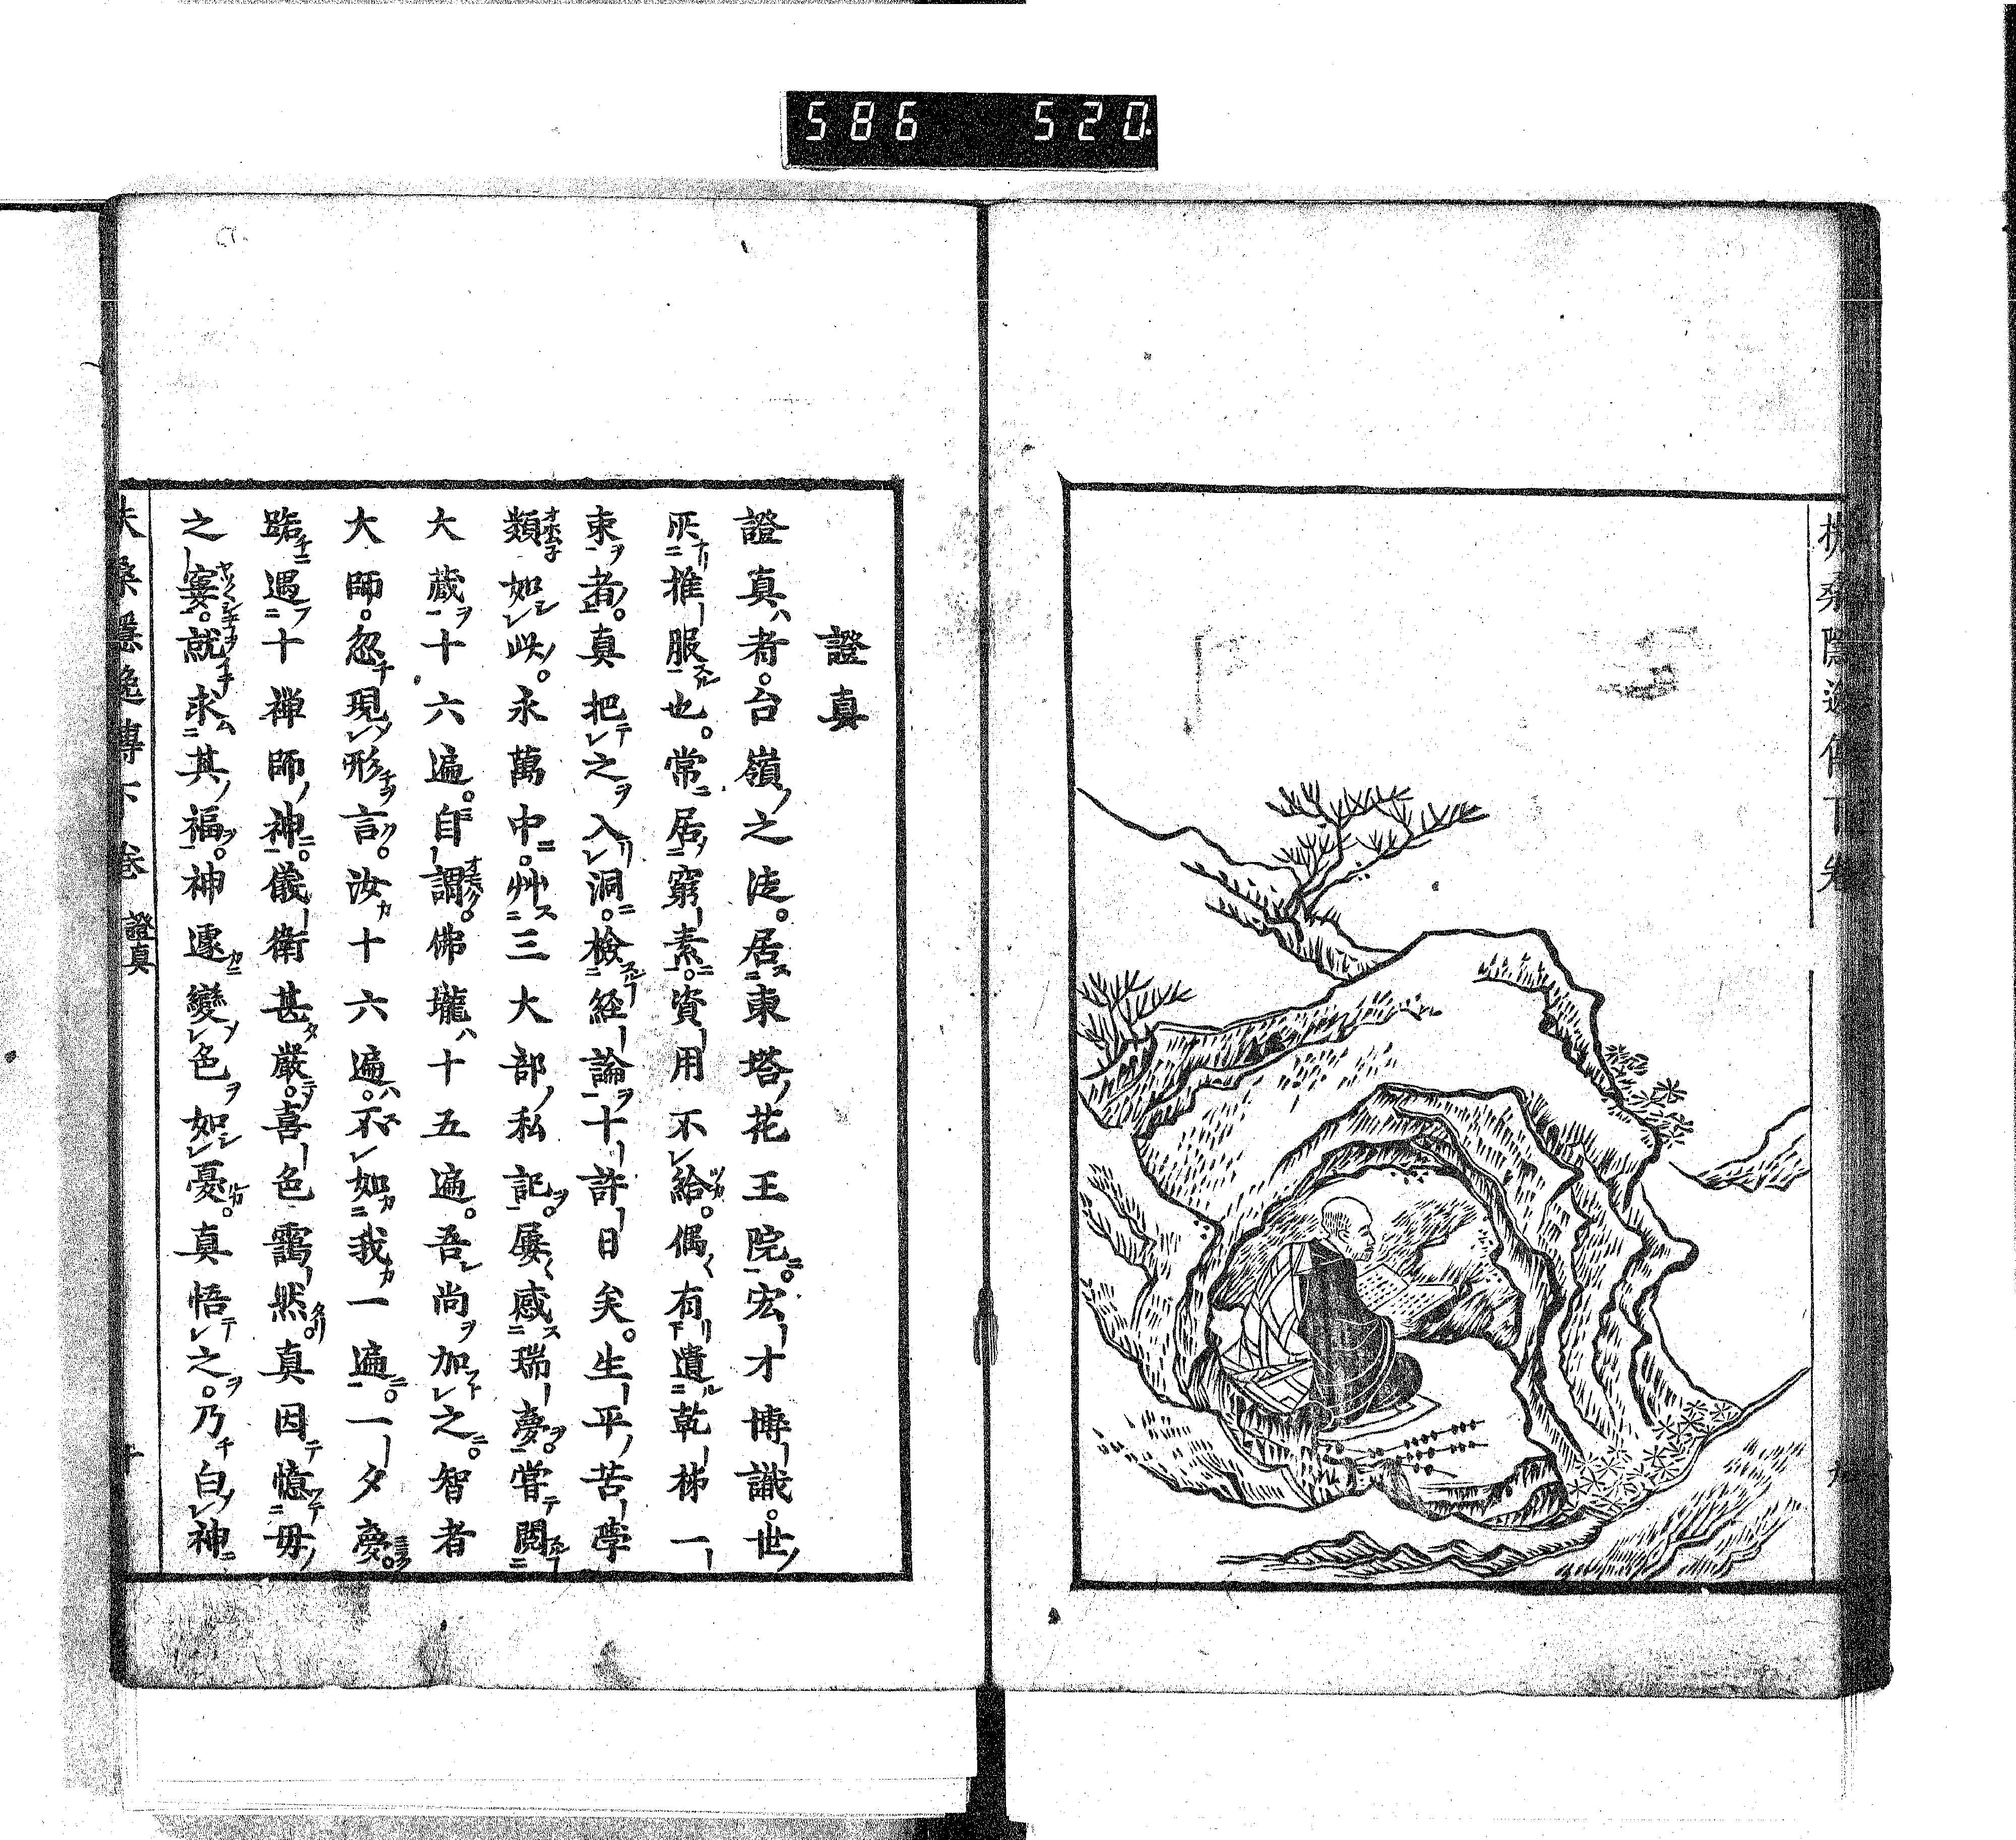 586 520
扶桑隱逸傳下卷 九
證真
證真者。台嶺之徒。居東塔花王院。宏才博識。世
所推服也。常居窮素。資用不給。偶有遺乾柹一
束者。真把之入洞。檢経論十許日矣。生平苦學
類如此。永萬中。艸三大部私記。屡感瑞夢。嘗閲
大蔵十六遍。自謂。佛壠十五遍。吾尚加之。智者
大師。忽現形言。汝十六遍。不如我一遍。一夕夢。
路遇十禅師神。儀衛甚嚴。喜色靄然。真因憶母
之窶。就求其福。神遽變色如憂。真悟之。乃白神
扶桑隱逸傳下卷 證真 十